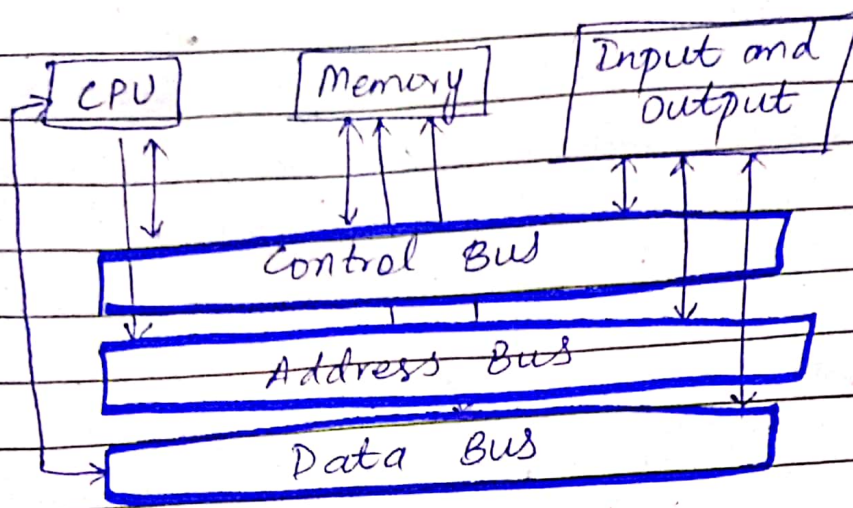 CPU
Memory
Input and
output
Control Bus
Address Bus
Data Bus